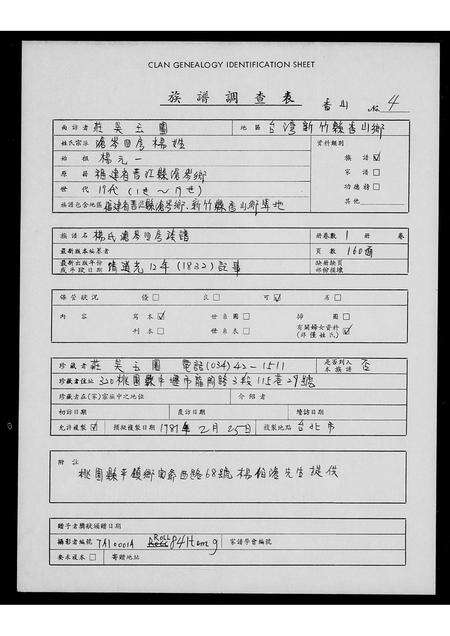 CLAN GENEALOGY IDENTIFICATION SHEET
族譜調查表 香山 No. 4
面訪者 莊吳玉圖 地區 台灣新竹縣香山鄉
姓氏宗派 滄岑回房楊姓 資料類別
始祖 楊元一 族譜 ☑
原籍 福建省晋江縣滄岑鄉 家譜 □
世代 17代 (1世~17世) 功德榜 □
族譜包含地區 福建省晋江縣滄岑鄉、新竹縣香山鄉等地 其他
族譜名 楊氏滄岑回房族譜 冊卷數 1 冊 卷
最新版本編纂者 頁數 160面
最新出版年份或手段日期 清道光12年(1832)記事 缺冊缺頁部份損壞
保管狀況 優 □ 良 □ 可 ☑ 差 □
內容 寫本 ☑ 世系圖 □ 師圖 □
刊本 □ 世系表 □ 有關婦女資料(非僅姓氏) □
珍藏者 莊吳玉圖 電話(034)42-1511 是否列入本族譜 否
珍藏者住址 320桃園縣中壢市龍岡路3段115巷29號
珍藏者在(家)宗族中之地位 介紹者
初訪日期 廣訪日期 續訪日期
允許複製 ☑ 預備複製日期 1981年2月25日 複製地點 台北市
附註
桃園縣平鎮鄉 西路68號楊伯滄先生提供
贈予者獎狀頒贈日期
攝影者編號 TA10001A ROLL 84 Item 9 家譜學會編號
要求複本 □ 寄贈地址